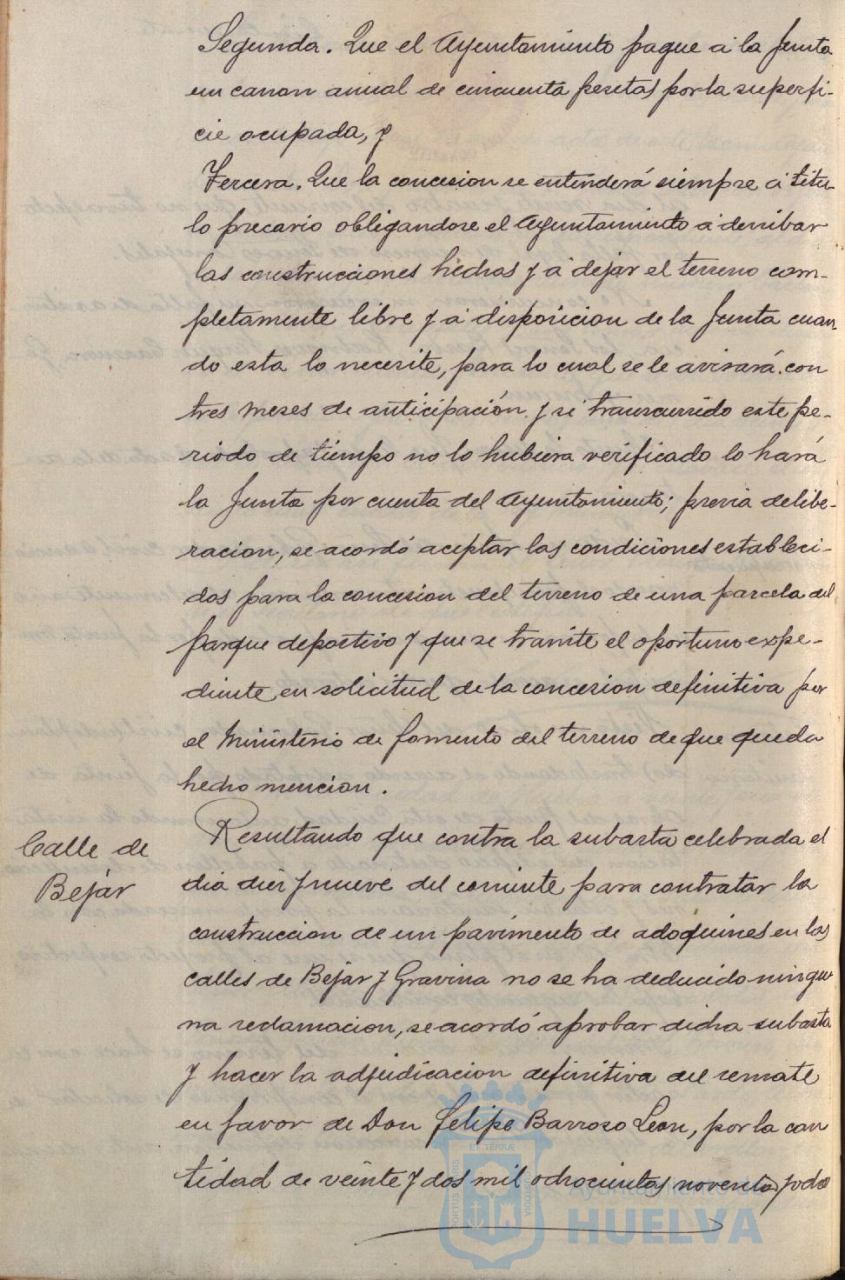 Segunda. Que el Ayuntamiento pague á la Junta
un canon anual de cincuenta pesetas por la superfi-
cie ocupada, y
Tercera. Que la concesion se entenderá siempre á titu-
lo precario obligandose el Ayuntamiento á derribar
las construcciones hechas y á dejar el terreno com-
pletamente libre y á disposicion de la Junta cuan-
do esta lo necesite, para lo cual se le avisará con
tres meses de anticipación y si transcurrido este pe-
riodo de tiempo no lo hubiera verificado lo hará
la Junta por cuenta del Ayuntamiento; previa delibe-
racion, se acordó aceptar las condiciones estableci-
das para la concesion del terreno de una parcela del
parque deportivo y que se tramite el oportuno expe-
diente en solicitud de la concesion definitiva por
el Ministerio de fomento del terreno de que queda
hecho mencion.
Calle de
Bejár
Resultando que contra la subasta celebrada el
dia diez y nueve del corriente para contratar la
construccion de un pavimento de adoquines en las
calles de Bejar y Gravina no se ha deducido ningu-
na reclamacion, se acordó aprobar dicha subasta
y hacer la adjudicacion definitiva del remate
en favor de Don Felipe Barroso Leon, por la can
tidad de veinte y dos mil ochocientas noventa y dos
Ayuntamiento de
HUELVA